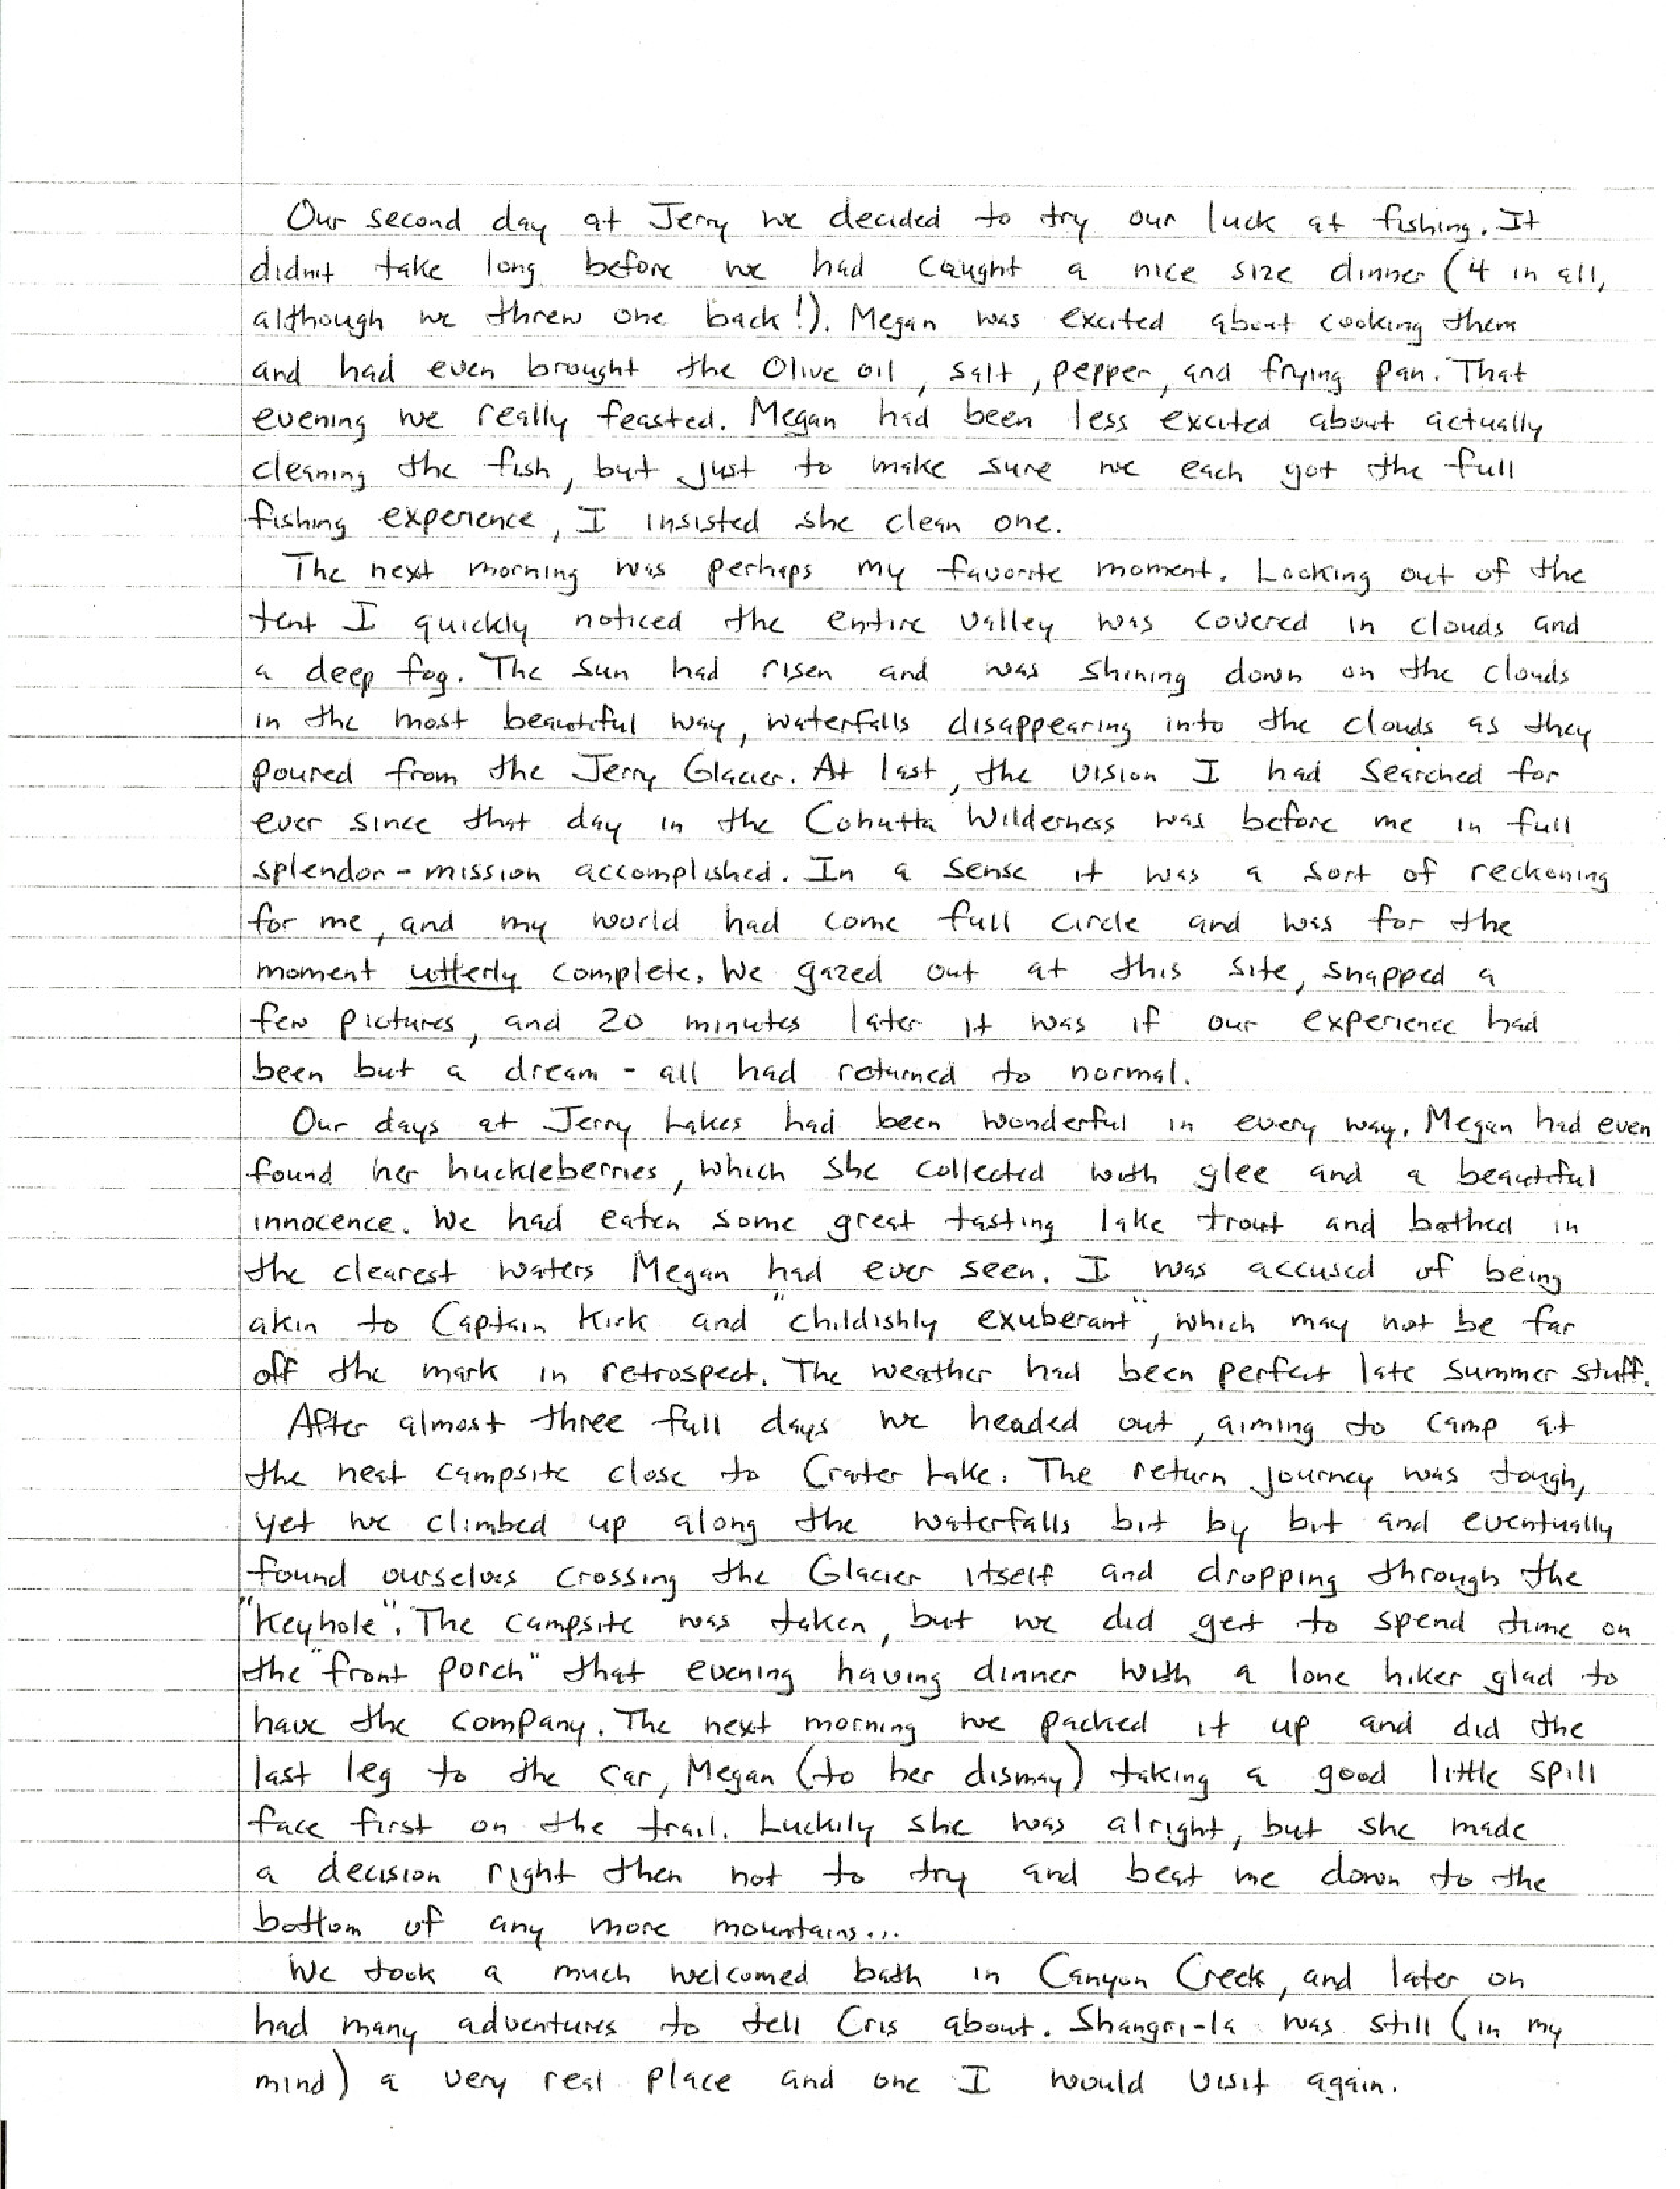 Our second day at Jerry we decided to try our luck at fishing. It
didn't take long before we had caught a nice size dinner (4 in all,
although we threw one back!). Megan was excited about cooking them
and had even brought the Olive oil, salt, pepper, and frying pan. That
evening we really feasted. Megan had been less excited about actually
cleaning the fish, but just to make sure we each got the full
fishing experience, I insisted she clean one.
The next morning was perhaps my favorite moment. Looking out of the
tent I quickly noticed the entire valley was covered in clouds and
a deep fog. The sun had risen and was shining down on the clouds
in the most beautiful way, waterfalls disappearing into the clouds as they
poured from the Jerry Glacier. At last, the vision I had searched for
ever since that day in the Cohutta Wilderness was before me in full
splendor - mission accomplished. In a sense it was a sort of reckoning
for me, and my world had come full circle and was for the
moment utterly complete. We gazed out at this site, snapped a
few pictures, and 20 minutes later it was if our experience had
been but a dream - all had returned to normal.
Our days at Jerry Lakes had been wonderful in every way. Megan had even
found her huckleberries, which she collected with glee and a beautiful
innocence. We had eaten some great tasting lake trout and bathed in
the clearest waters Megan had ever seen. I was accused of being
akin to Captain Kirk and "childishly exuberant", which may not be far
off the mark in retrospect. The weather had been perfect late summer stuff.
After almost three full days we headed out, aiming to camp at
the neat campsite close to Crater Lake. The return journey was tough,
yet we climbed up along the waterfalls bit by bit and eventually
found ourselves crossing the Glacier itself and dropping through the
"Keyhole". The campsite was taken, but we did get to spend time on
the "front porch" that evening having dinner with a lone hiker glad to
have the company. The next morning we packed it up and did the
last leg to the car, Megan (to her dismay) taking a good little spill
face first on the trail. Luckily she was alright, but she made
a decision right then not to try and beat me down to the
bottom of any more mountains...
We took a much welcomed bath in Canyon Creek, and later on
had many adventures to tell Cris about. Shangri-la was still (in my
mind) a very real place and one I would visit again.